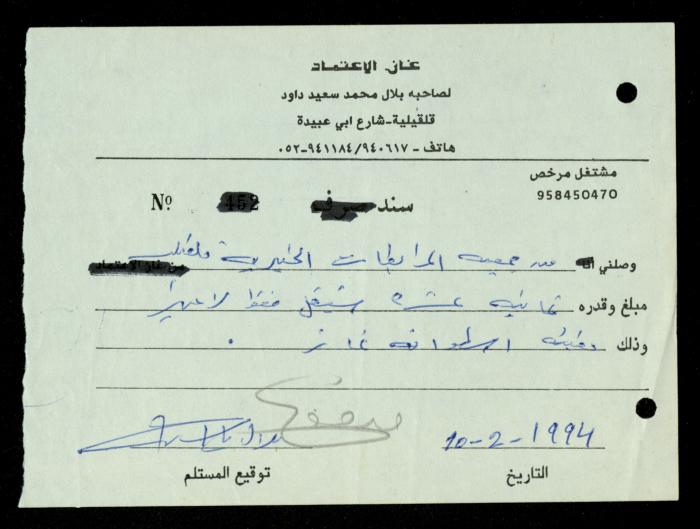 غاز الاعتماد
لصاحبه بلال محمد سعيد داود
قلقيلية-شارع ابي عبيدة
هاتف - ٩٤٠٦١٧/ ٠٥٢-٩٤١١٨٤
مشتغل مرخص
958450470
سند صرف
Nº 452
وصلني أنا من جمعية المرابطات الخيرية قلقيلية
من غاز الاعتماد
مبلغ وقدره ثمانية عشرة شيقل فقط لا غير
وذلك اسطوانة غاز .
مدفوع
10-2-1994
التاريخ
توقيع المستلم